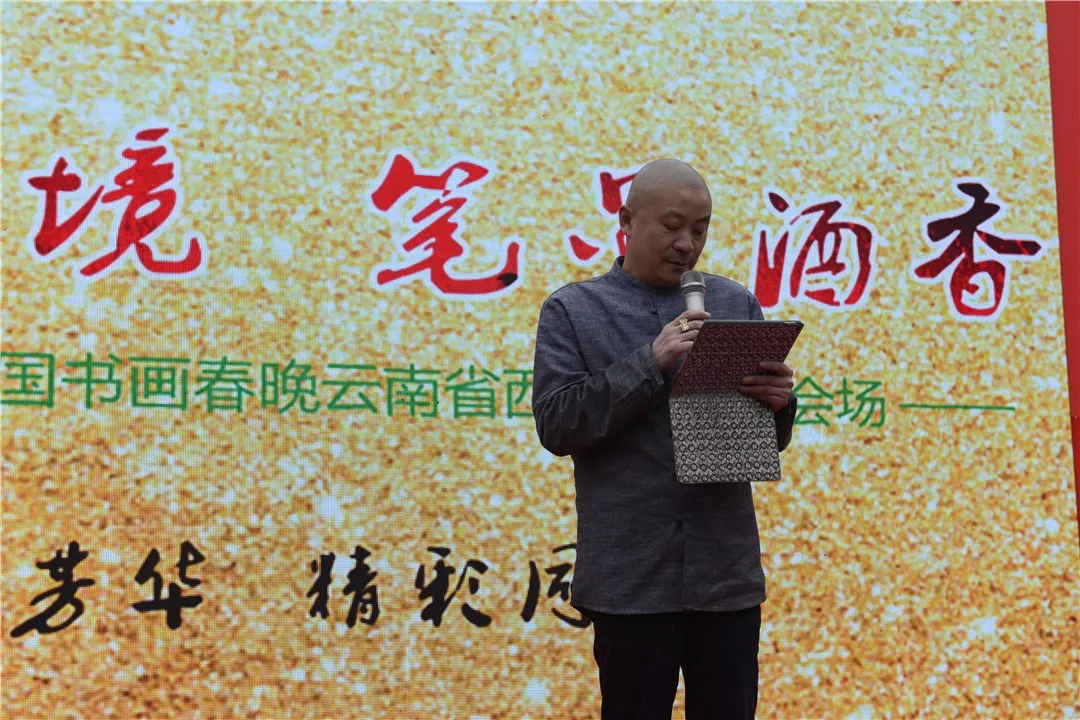 境 笔 酒香
国书画春晚云南省西 会场——
芳华 精彩